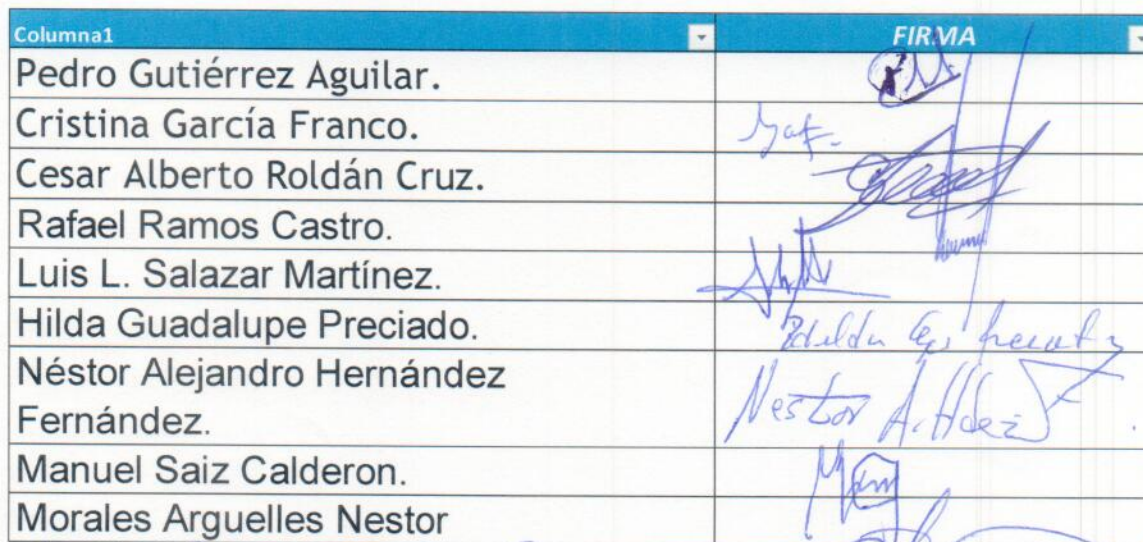 Columna1 FIRMA
Pedro Gutiérrez Aguilar.
Cristina García Franco.
Cesar Alberto Roldán Cruz.
Rafael Ramos Castro.
Luis L. Salazar Martínez.
Hilda Guadalupe Preciado.
Néstor Alejandro Hernández
Fernández.
Nestor A. Hdez
Manuel Saiz Calderon.
Morales Arguelles Nestor